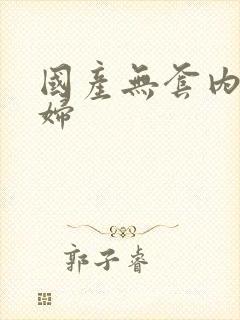 國產無套内
婦
郭子睿